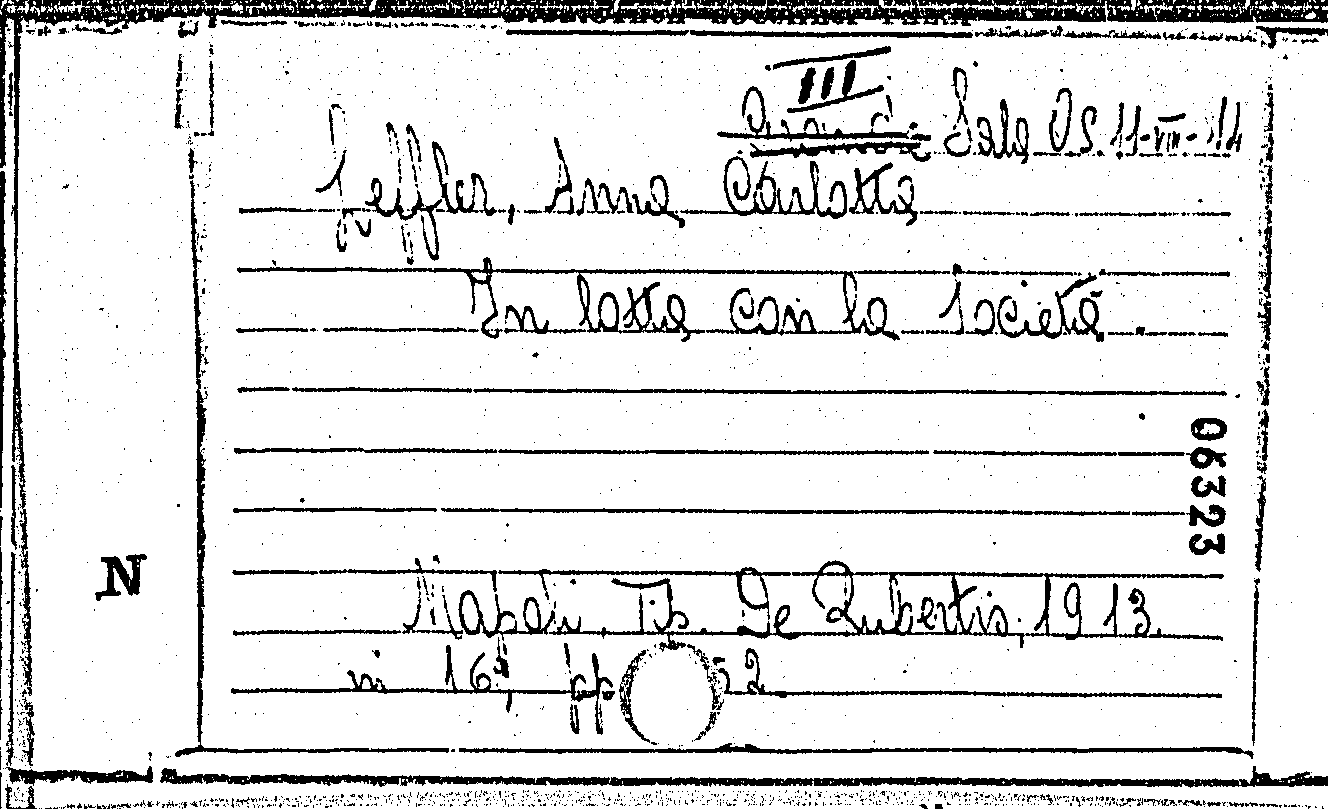 III
Grande Sala OS. 11-VIII-14
Leffler, Anna Carlotta
In lotta con la Società.
06323
N
Napoli, Tip. De Rubertis, 1913.
in 16°, pp 52.